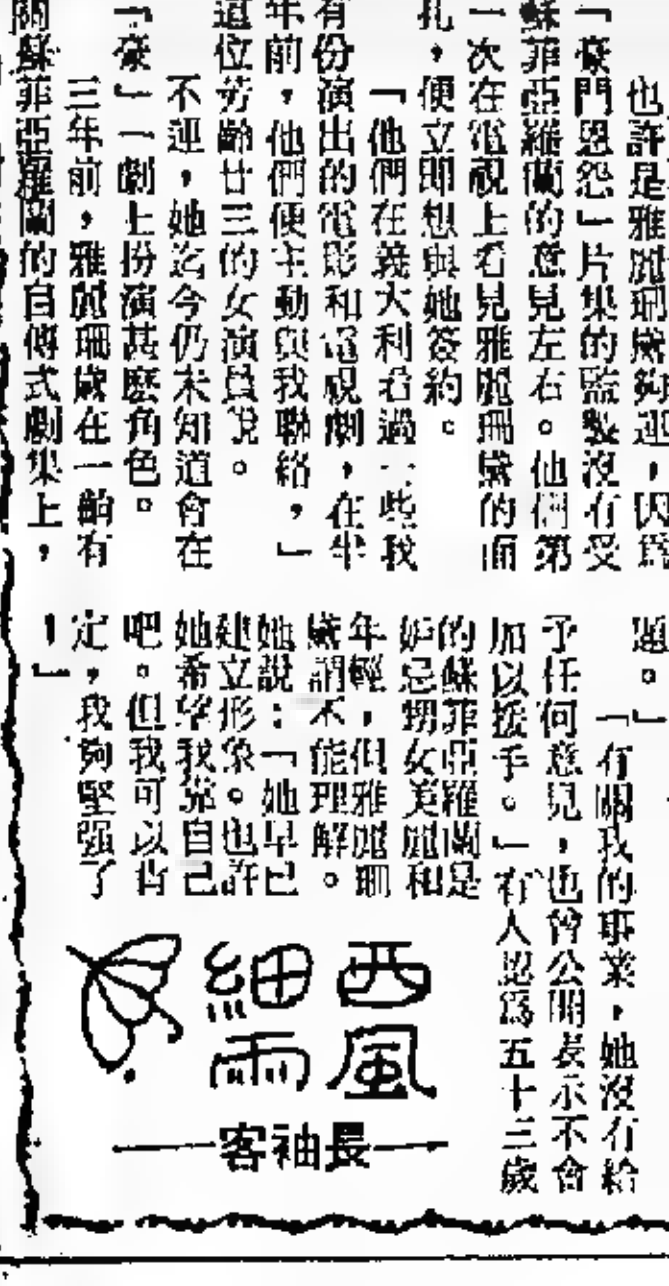 也許是雅麗珊黛夠運，因爲
「豪門恩怨」片集的監製沒有受
蘇菲亞羅蘭的意見左右。他們第
一次在電視上看見雅麗珊黛的面
扎，便立即想與她簽約。
「他們在義大利看過一些我
有份演出的電影和電視劇，在半
年前，他們便主動與我聯絡，」
這位芳齡廿三的女演員說。
不運，她迄今仍未知道會在
「豪」一劇上扮演甚麼角色。
三年前，雅麗珊黛在一齣有
關蘇菲亞羅蘭的自傳式劇集上，
題。」
「有關我的事業，她沒有給
予任何意見，也曾公開表示不會
加以援手。」有人認爲五十三歲
的蘇菲亞羅蘭是
妒忌甥女美麗和
年輕，但雅麗珊
黛謂不能理解。
她說：「她早已
建立形象。也許
她希望我靠自己
吧。但我可以肯
定，我夠堅强了
！」
西風
細雨
長袖客